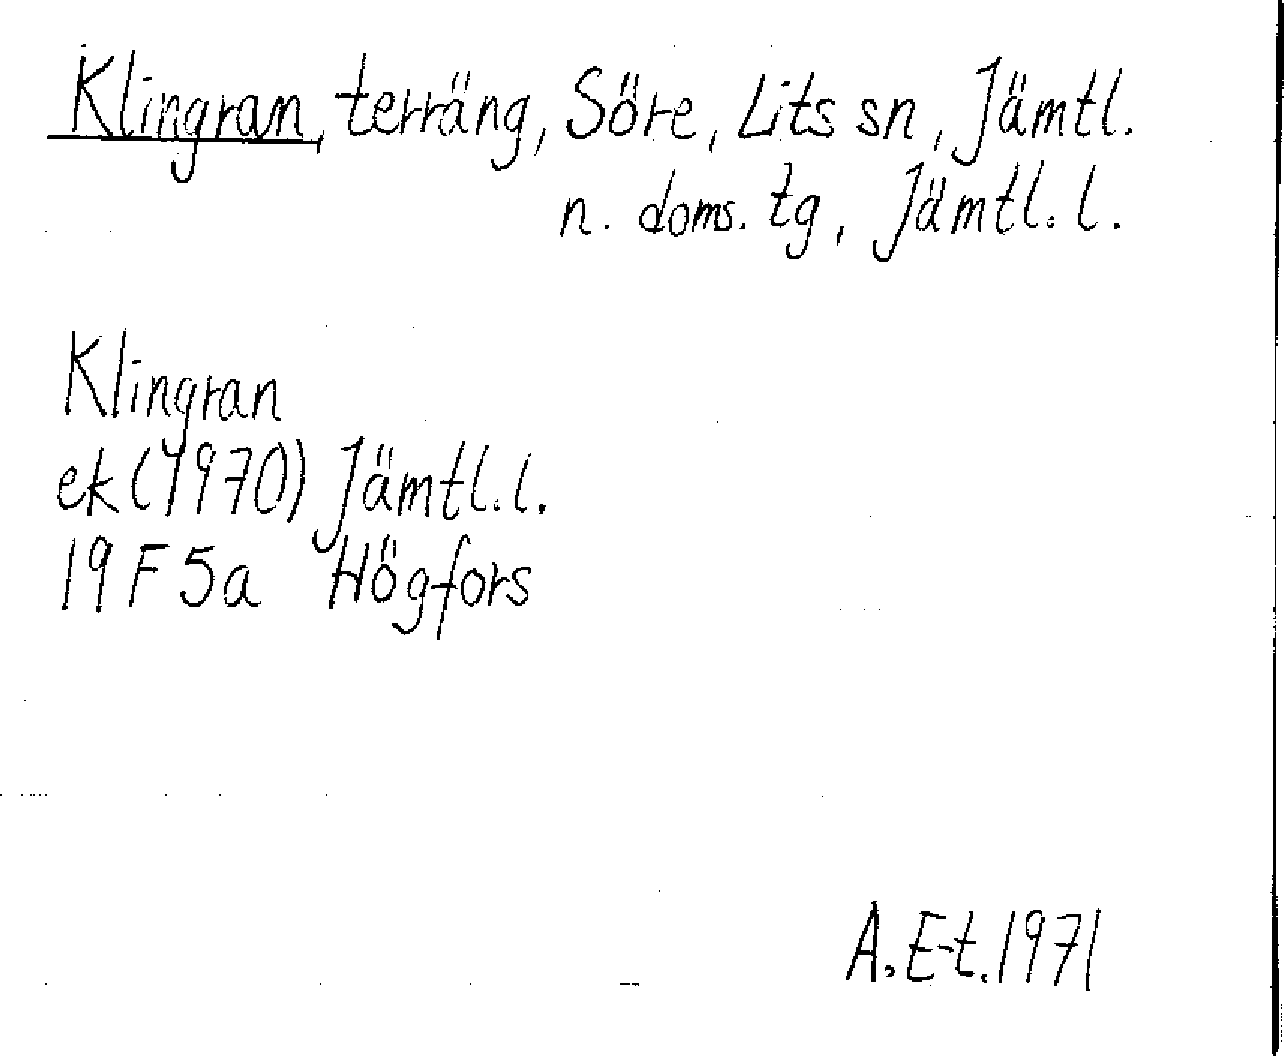 Klingran, terräng, Söre, Lits sn, Jämtl.
n. doms. tg, Jämtl. l.
Klingran
ek (1970) Jämtl. l.
19 F 5a Högfors
A. E-t. 1971